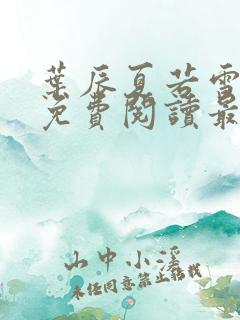 葉辰夏若雪
免費閱讀最
山中小溪
未經同意禁止轉載